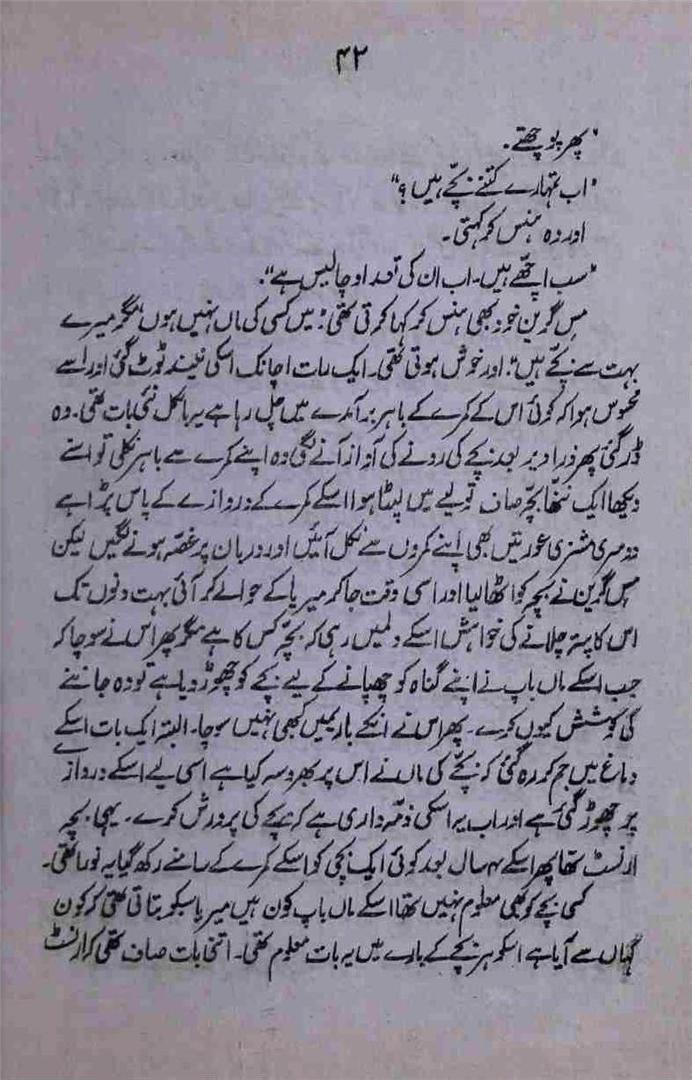 ۴۲
”پھر پوچھتے۔
”اب تمہارے کتنے بچّے ہیں؟“
اور وہ ہنس کر کہتی۔
”سب اچھّے ہیں۔ اب ان کی تعداد چالیس ہے“۔
مِس گرین خود بھی ہنس کر کہا کرتی تھی: میں کسی کی ماں نہیں ہوں مگر میرے
بہت سے بچّے ہیں“۔ اور خوش ہوتی تھی۔ ایک رات اچانک اسکی نیند ٹوٹ گئی اور اسے
محسوس ہوا کہ کوئی اس کے کمرے کے باہر برآمدے میں چل رہا ہے یہ بالکل نئی بات تھی۔ وہ
ڈر گئی پھر ذرا دیر بعد بچّے کی رونے کی آواز آنے لگی وہ اپنے کمرے سے باہر نکلی تو اسنے
دیکھا ایک ننھّا بچّہ صاف تولیے میں لپٹا ہوا اسکے کمرے کے دروازے کے پاس پڑا ہے
دوسری مشنری عورتیں بھی اپنے کمروں سے نکل آئیں اور دربان پر غصّہ ہونے لگیں لیکن
مس گرین نے بچہ کو اٹھا لیا اور اسی وقت جا کر میریا کے حوالے کر آئی بہت دنوں تک
اس کا پتہ چلانے کی خواہش اسکے دلمیں رہی کہ بچّہ کس کا ہے مگر پھر اس نے سوچا کہ
جب اسکے ماں باپ نے اپنے گناہ کو چھپانے کے لیے بچے کو چھوڑ دیا ہے تو وہ جاننے
کی کوشش کیوں کرے۔ پھر اس نے انکے باریمیں کبھی نہیں سوچا۔ البتہ ایک بات اسکے
دماغ میں جم کر رہ گئی کہ بچّے کی ماں نے اس پر بھروسہ کیا ہے اسی لیے اسکے دروازے
پر چھوڑ گئی ہے اور اب یہ اسکی ذمّہ داری ہے کہ بچے کی پرورش کرے۔ یہی بچہ
ارنسٹ تھا پھر اسکے سال بعد کوئی ایک بچّی کو اسکے کمرے کے سامنے رکھ گیا یہ نورا تھی۔
کسی بچے کو بھی معلوم نہیں تھا اسکے ماں باپ کون ہیں میریا سبکو بتاتی تھی کہ کون
کہاں سے آیا ہے اسکو ہر بچّے کے بارے میں یہ بات معلوم تھی۔ اتنی بات صاف تھی کہ ارنسٹ